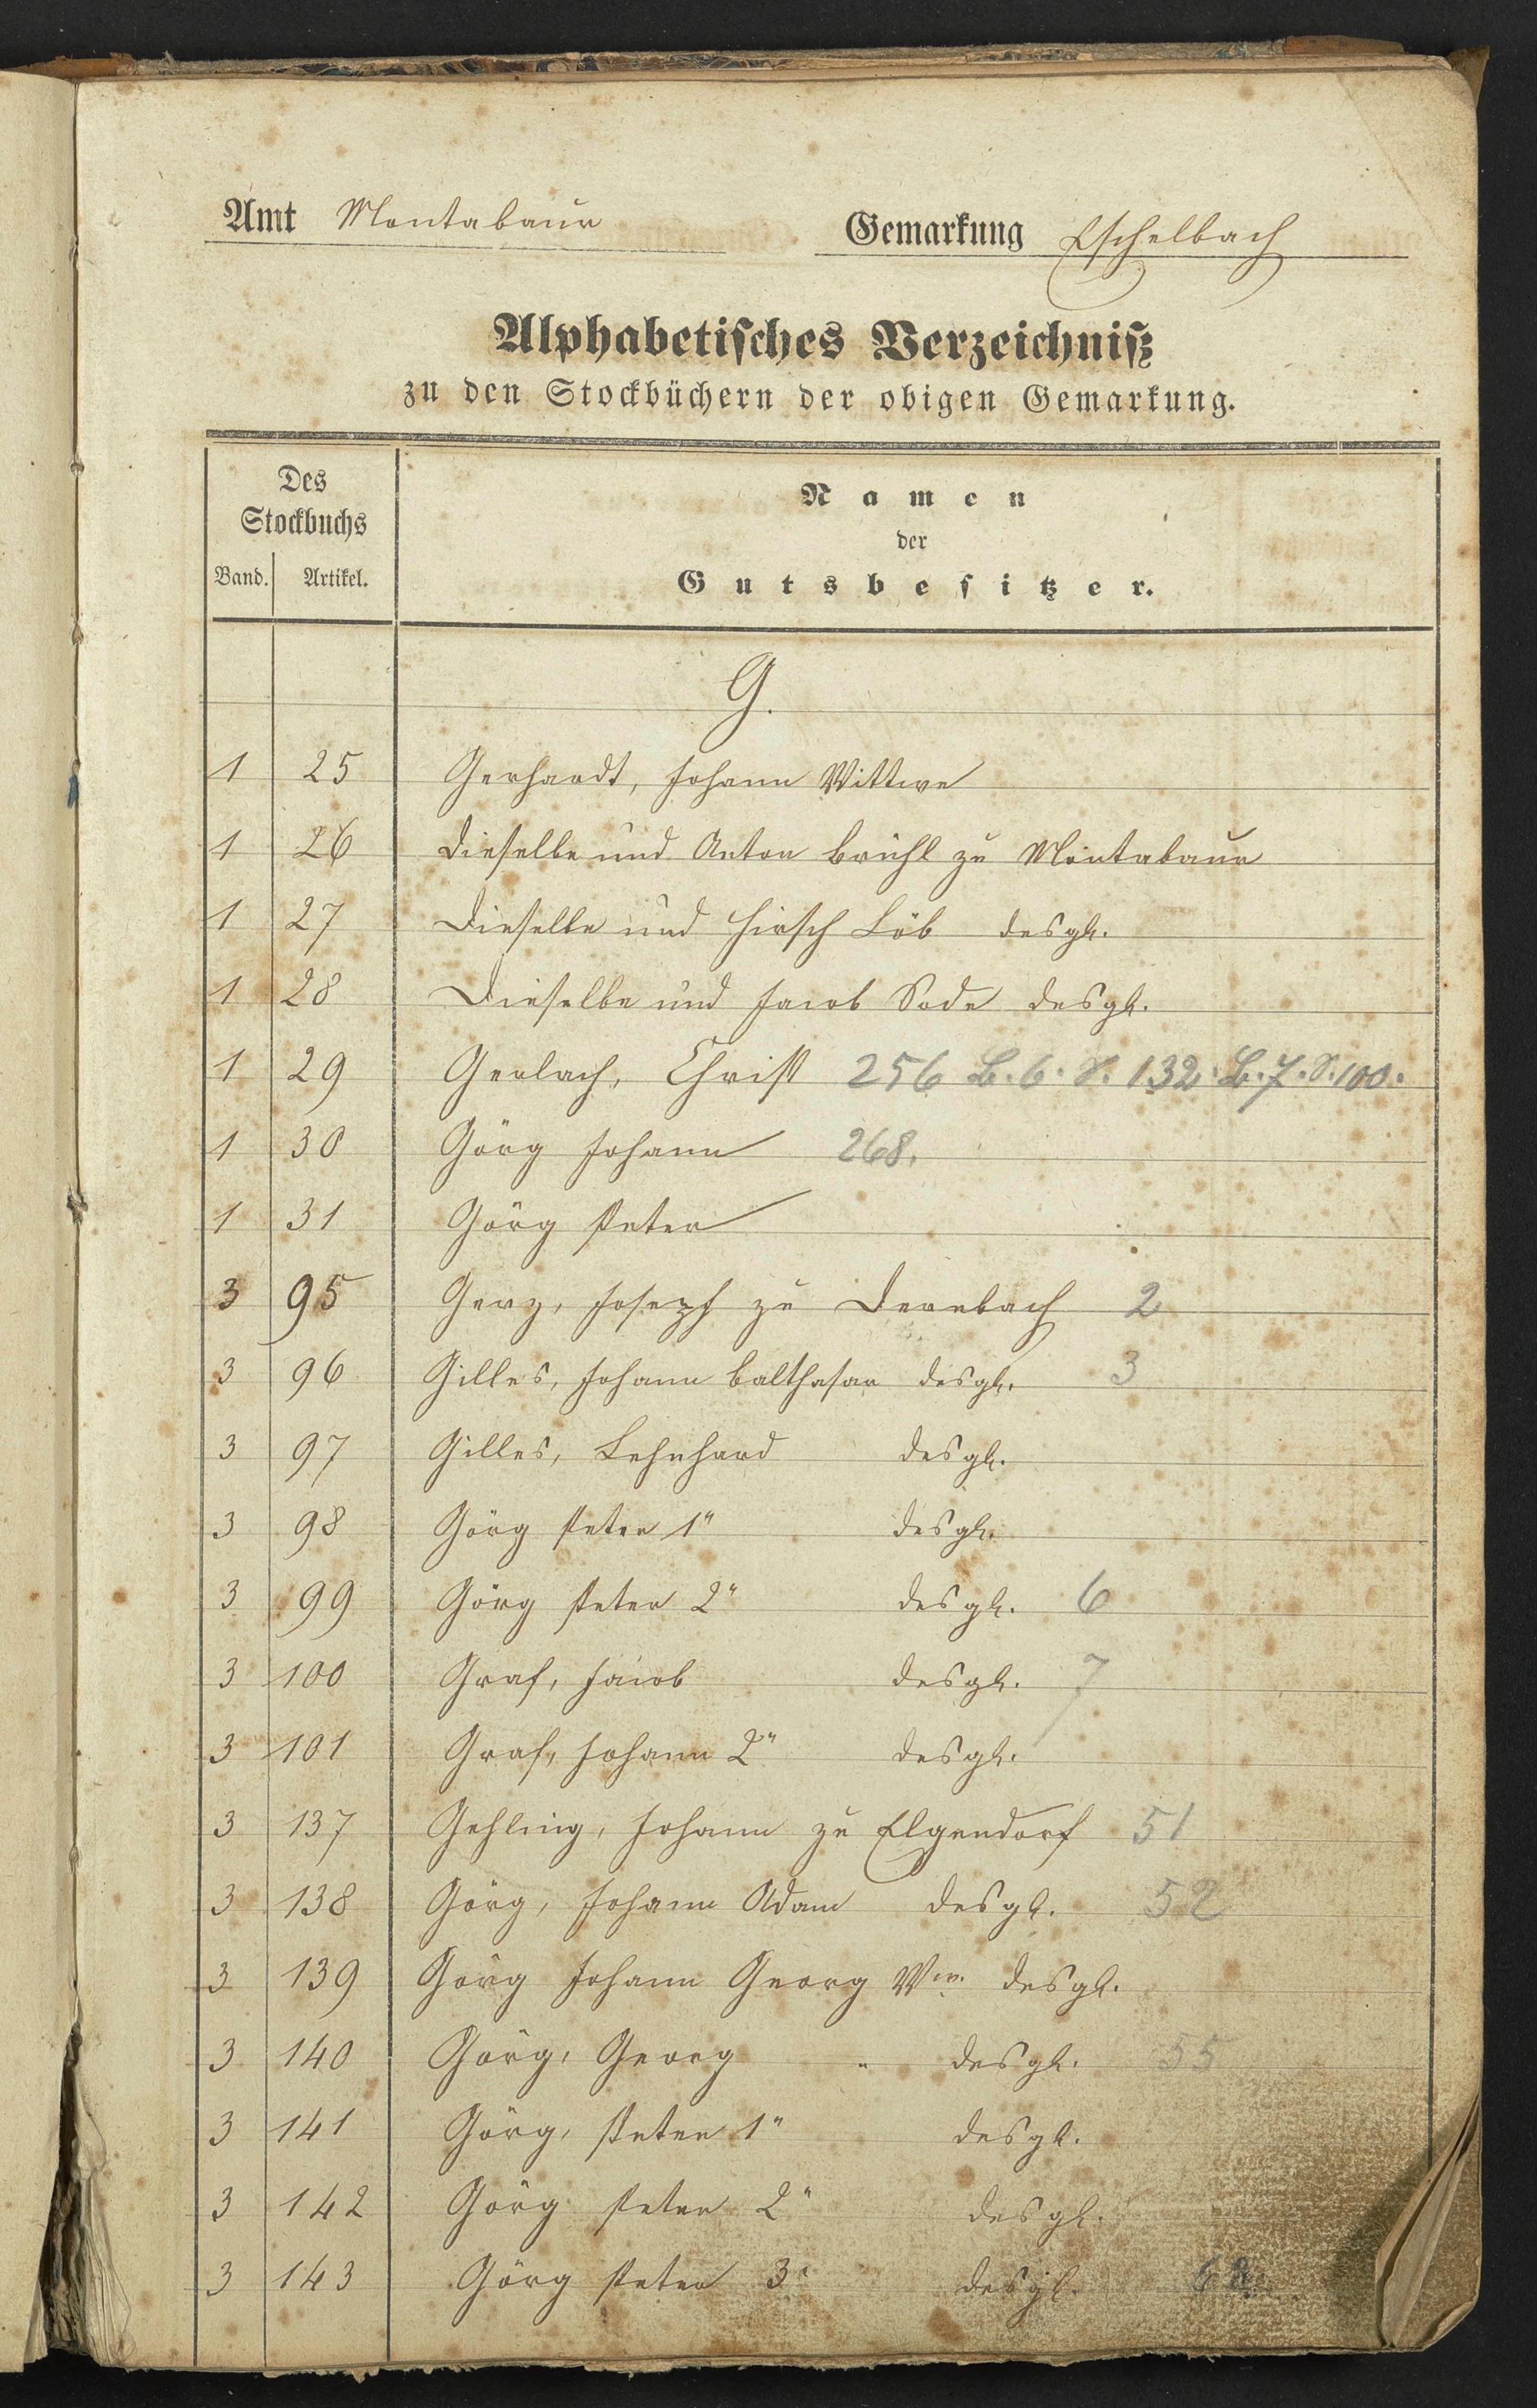 Amt Montabaur
Gemarkung Eschelbach
Alphabetisches Verzeichniß
zu den Stockbüchern der obigen Gemarkung.
Des
Stockbuchs
Band. Artikel.
Namen
der
Gutsbesitzer.
G.
1 25 Gerhardt, Johann Wittwe
1 26 Dieselbe und Anton Brühl zu Montabaur
1 27 Dieselbe und Hirsch Löb desgl.
1 28 Dieselbe und Jacob Sode desgl.
1 29 Gerlach, Christ 256 B. 6. S. 132. B. 7. S. 100.
1 30 Görg Johann 268.
1 31 Görg Peter
3 95 Gerz, Joseph zu Dernbach 2
3 96 Gilles, Johann Balthasar desgl. 3
3 97 Gilles, Lehnhard desgl.
3 98 Görg Peter 1r desgl.
3 99 Görg Peter 2r desgl. 6
3 100 Graf, Jacob desgl. 7
3 101 Graf, Johann 2r desgl.
3 137 Gehling, Johann zu Elgendorf 51
3 138 Görg, Johann Adam desgl. 52
3 139 Görg Johann Georg Ww. desgl.
3 140 Görg, Georg " desgl. 55
3 141 Görg, Peter 1r desgl.
3 142 Görg Peter 2r desgl.
3 143 Görg Peter 3r desgl.